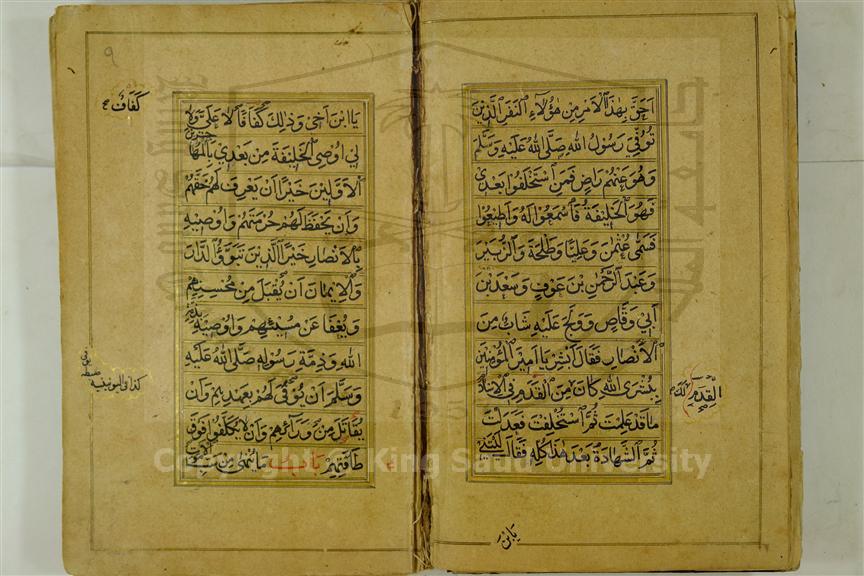 احق بهذا الامر من هؤلاء النفر الذين
توفي رسول الله صلى الله عليه وسلم
وهو عنهم راض فمن استخلفوا بعدي
فهو الخليفة فاسمعوا له واطيعوا
فسمى عثمن وعليا وطلحة والزبير
وعبد الرحمن بن عوف وسعد بن
ابي وقاص وولج عليه شاب من
الانصار فقال ابشر يا امير المؤمنين
ببشرى الله كان من القدم في الاسلام
ما قد علمت ثم استخلفت فعدلت
ثم الشهادة بعد هذا كله فقال ليتني
القدم لك
يابن
٩
يا ابن اخي وذلك كفافا لا علي ولا
لي اوصي الخليفة من بعدي بالمهاجرين
الاولين خيرا ان يعرف لهم حقهم
وان يحفظ لهم حرمتهم واوصيه
بالانصار خيرا الذين تبوؤا الدار
والايمان ان يقبل من محسنهم
ويعفا عن مسيئهم واوصيه بذمة
الله وذمة رسوله صلى الله عليه
وسلم ان يوفى لهم بعهدهم وان
يقاتل من ورائهم وان لا يكلفوا فوق
طاقتهم باب ما ينهى من سب الاموات
كفاف
كذا في اليونينية
Copyright © King Saud University